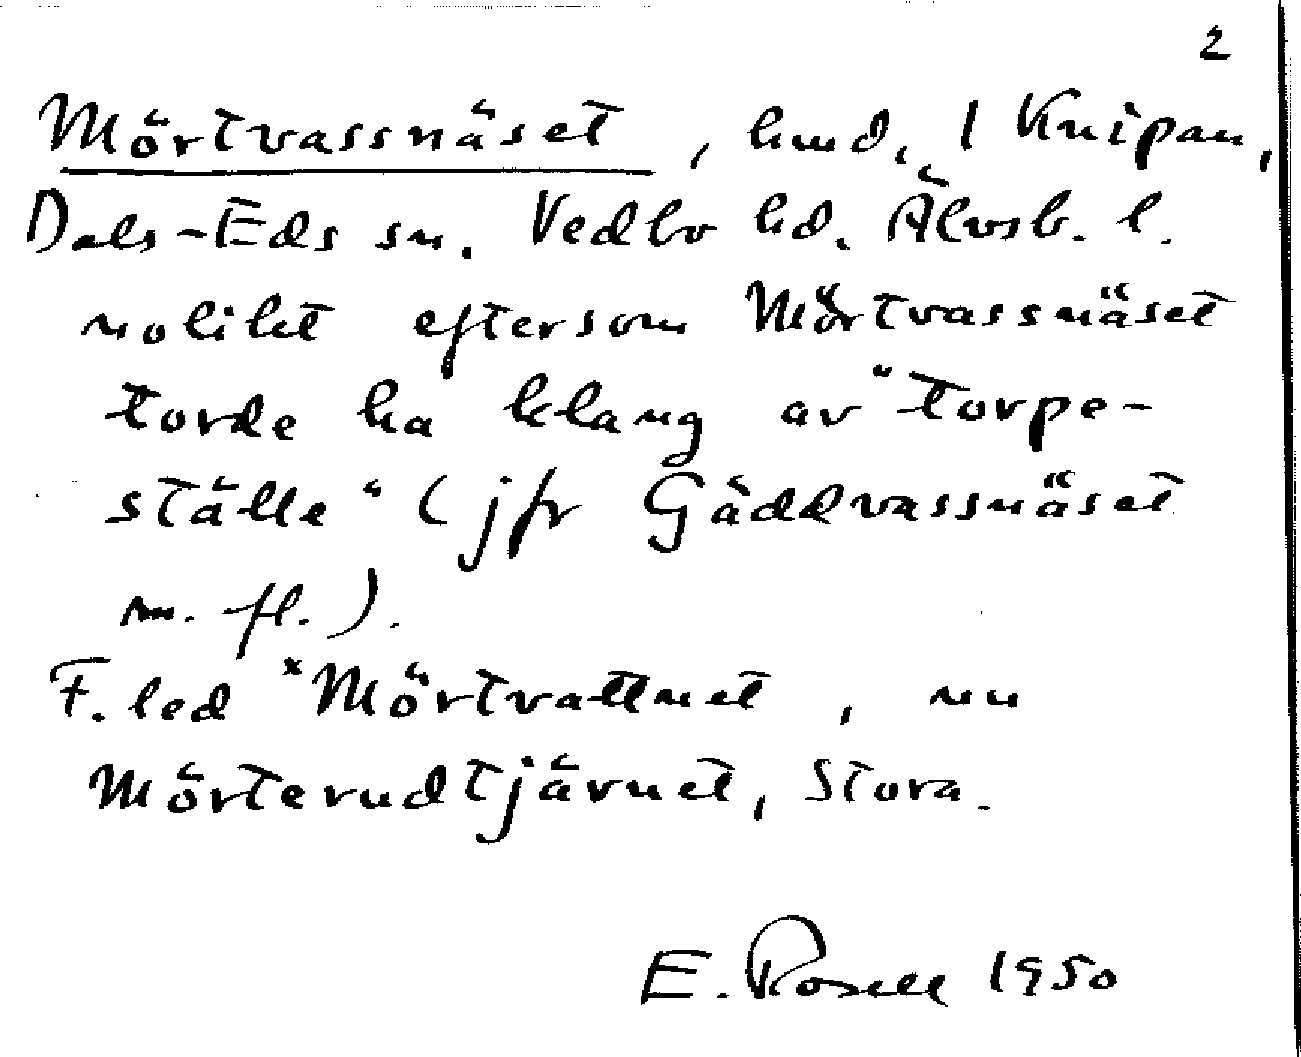 2
Mörtvassnäset, hmd. 1 Knipan,
Dals-Eds sn. Vedbo hd. Älvsb. l.
nolikt eftersom Mörtvassnäset
torde ha klang av "torpe-
ställe" (jfr Gäddvassnäset
m. fl.).
F. led *Mörtvattnet, nu
Mörterudtjärnet, Stora.
E. Rosell 1950